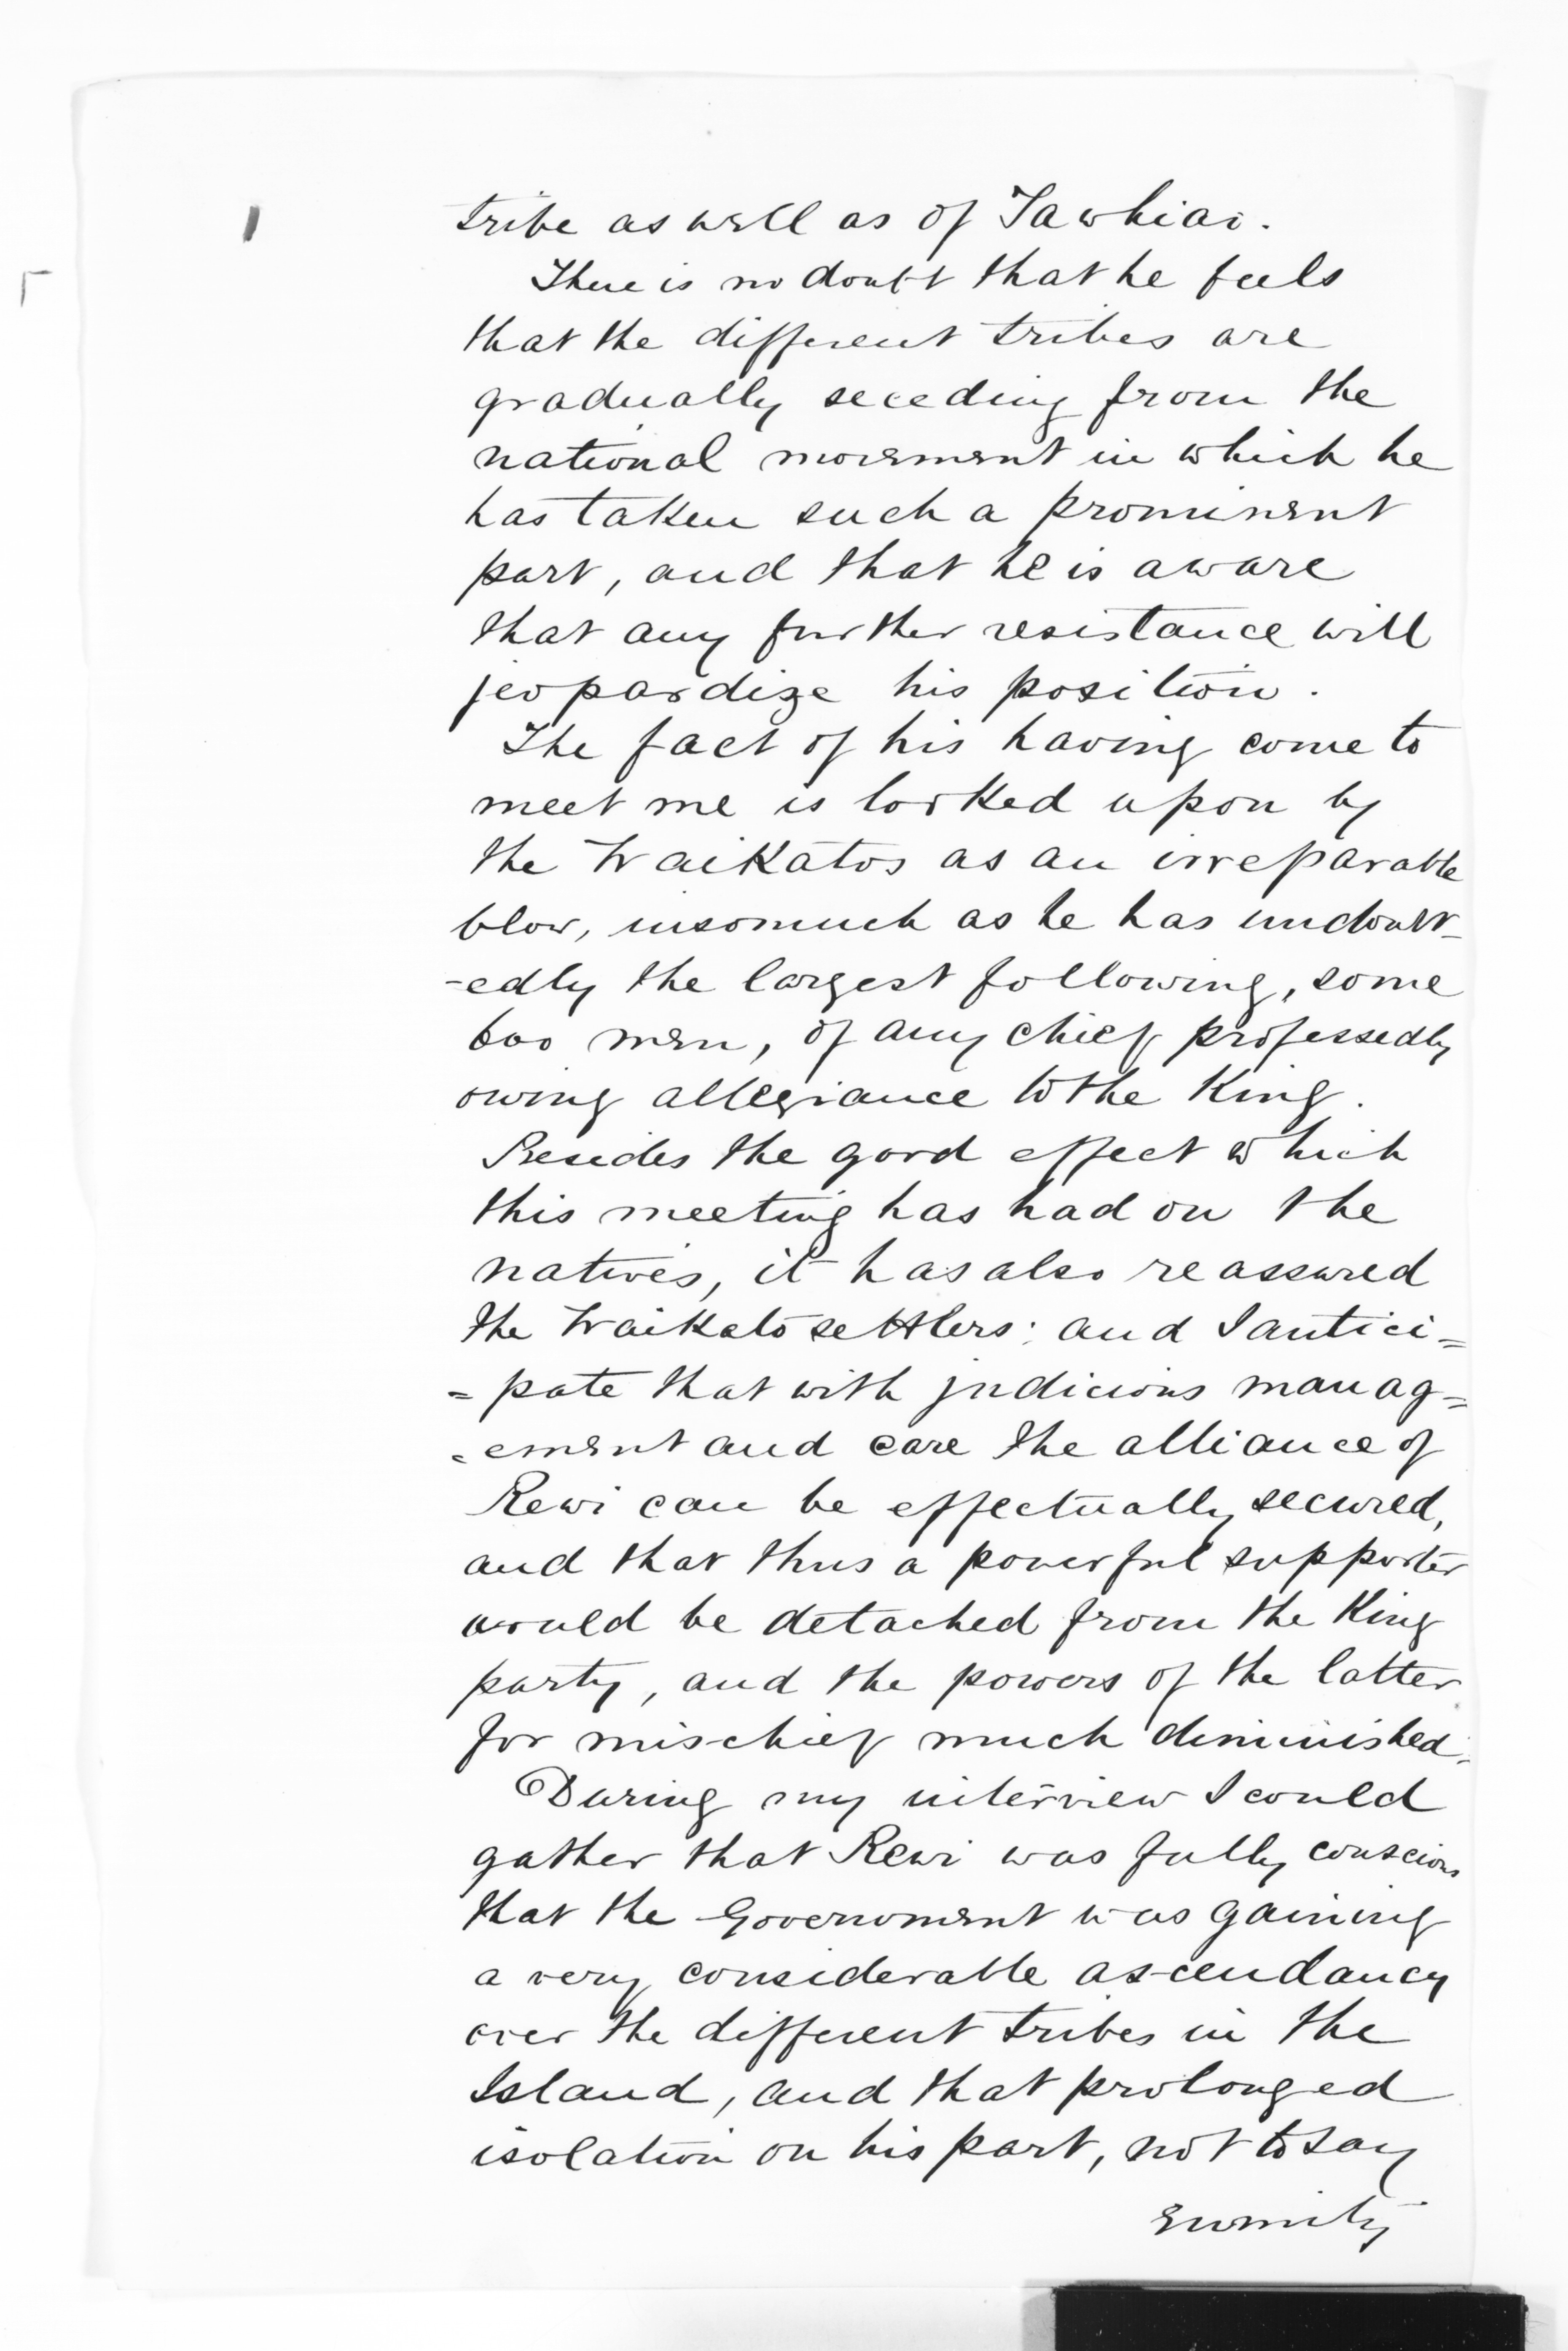 tribe as well as of Tawhiao.
There is no doubt that he feels
that the different tribes are
gradually seceding from the
national movement in which he
has taken such a prominent
part, and that he is aware
that any further resistance will
jeopardize his position.
The fact of his having come to
meet me is looked upon by
the Waikatos as an irreparable
blow, insomuch as he has undoubt-
-edly the largest following, some
600 men, of any chief professedly
owing allegiance to the King.
Besides the good effect which
this meeting has had on the
natives, it has also reassured
the Waikato settlers; and I antici=
=pate that with judicious manag=
=ement and care the alliance of
Rewi can be effectually secured,
and that thus a powerful supporter
would be detached from the King
party, and the powers of the latter
for mischief much diminished.
During my interview I could
gather that Rewi was fully conscious
that the Government was gaining
a very considerable ascendancy
over the different tribes in the
Island, and that prolonged
isolation on his part, not to say
enmity